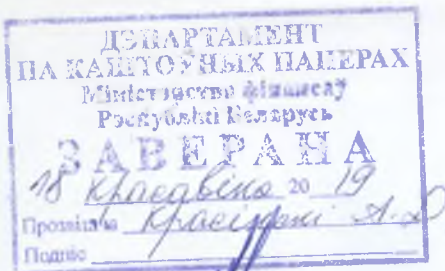 ДЭПАРТАМЕНТ
ПА КАШТОЎНЫХ ПАПЕРАХ
Міністэрства фінансаў
Рэспублікі Беларусь
ЗАВЕРАНА
18 красавіка 20 19
Прозвішча
Подпіс